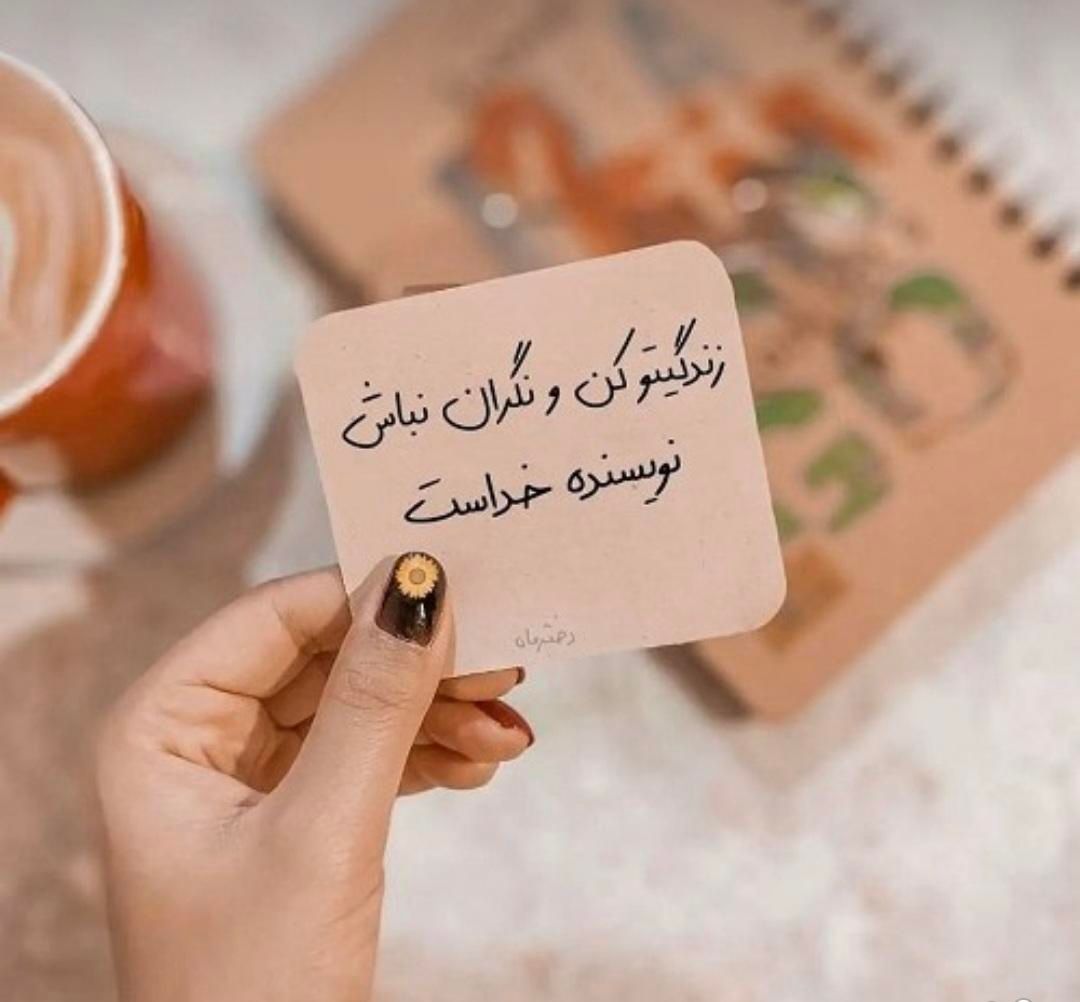 زندگیتو کن و نگران نباش
نویسنده خداست
دخترماه